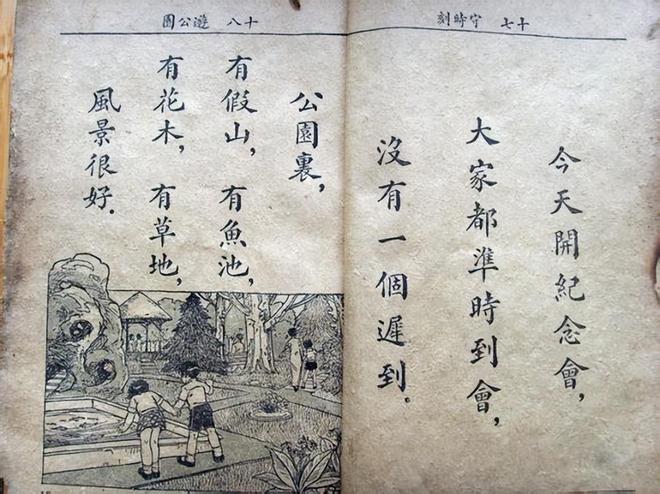 十七 守時刻
今天開紀念會，
大家都準時到會，
沒有一個遲到。
十八 遊公園
公園裏，
有假山，有魚池，
有花木，有草地，
風景很好．